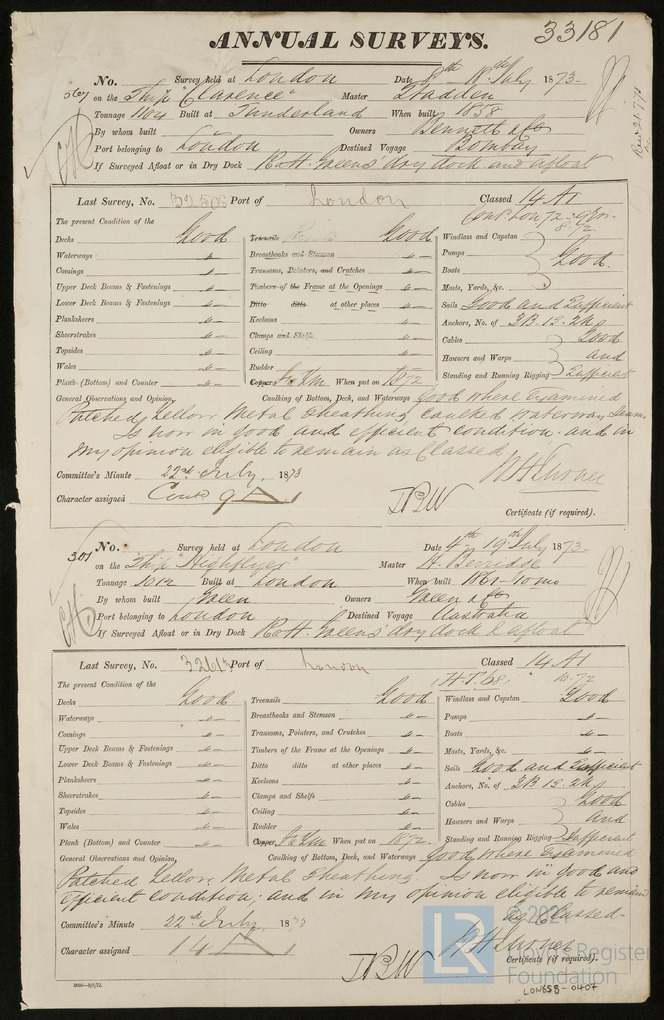 33181
ANNUAL SURVEYS.
No. Survey held at London Date 8th 18th July 1873
on the Ship "Clarence" Master
Tonnage 1104 Built at Sunderland When built 1858
By whom built Owners Bennett & Co
Port belonging to London Destined Voyage Bombay
If Surveyed Afloat or in Dry Dock R & H. Greens' dry dock and afloat
Last Survey, No. Port of London Classed 14 A1
Cont Lon 72-9Yrs-
The present Condition of the
Decks Good Treenails Good Windlass and Capstan
Waterways " Breasthooks and Stemson " Pumps Good
Comings " Transoms, Pointers, and Crutches " Boats
Upper Deck Beams & Fastenings " Timbers of the Frame at the Openings " Masts, Yards, &c.
Lower Deck Beams & Fastenings " Ditto ditto at other places " Sails Good and Sufficient
Planksheers " Keelsons " Anchors, No. of 3B. 1S. 2Kg
Sheerstrakes " Clamps and Shelfs " Cables Good
Topsides " Ceiling " Hawsers and Warps and
Wales " Rudder " Standing and Running Rigging Sufficient
Plank (Bottom) and Counter " Copper When put on 1872
General Observations and Opinion, Caulking of Bottom, Deck, and Waterways Good where Examined
Patched Yellow Metal Sheathing, caulked waterway seams
Is now in good and efficient condition and in
my opinion eligible to remain as Classed
Committee's Minute 22nd July, 1873
Character assigned Contd 9 A 1
Certificate (if required).
301
No. Survey held at London Date 4th 19th July 1873
on the Ship "Highflyer" Master H. Berridge
Tonnage 1012 Built at London When built 1861-10mo
By whom built Green Owners Green & Co
Port belonging to London Destined Voyage Australia
If Surveyed Afloat or in Dry Dock R & H. Greens' dry dock & afloat
Last Survey, No. Port of London Classed 14 A1
10.72
The present Condition of the
Decks Good Treenails Good Windlass and Capstan Good
Waterways " Breasthooks and Stemson " Pumps "
Comings " Transoms, Pointers, and Crutches " Boats "
Upper Deck Beams & Fastenings " Timbers of the Frame at the Openings " Masts, Yards, &c. "
Lower Deck Beams & Fastenings " Ditto ditto at other places " Sails Good and Sufficient
Planksheers " Keelsons " Anchors, No. of 3B. 1S. 2Kg
Sheerstrakes " Clamps and Shelfs " Cables Good
Topsides " Ceiling " Hawsers and Warps and
Wales " Rudder " Standing and Running Rigging Sufficient
Plank (Bottom) and Counter " Copper When put on 1872
General Observations and Opinion, Caulking of Bottom, Deck, and Waterways Good where Examined
Patched Yellow Metal Sheathing. Is now in good and
efficient condition; and in my opinion eligible to remain
as Classed-
Committee's Minute 22nd July 1873
Character assigned 14 A 1
Certificate (if required).
© 2021
LR
Lloyd's Register
Foundation
LON658-0407